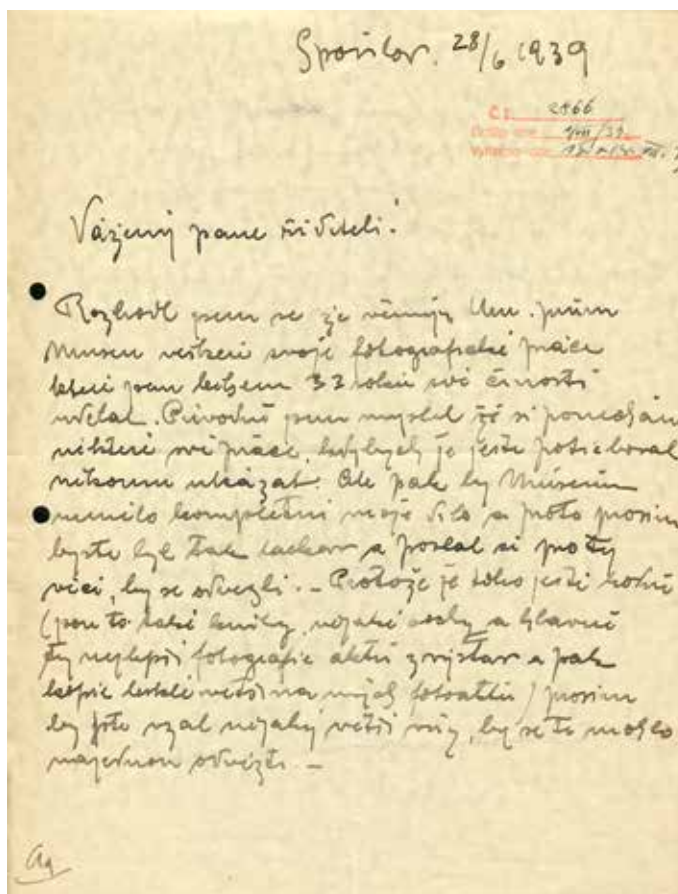 Spořilov. 28/6 1939
Č. j. 2866
Vážený pane řiditeli!
Rozhodl jsem se že věnuji Um. prům
Museu veškeré svoje fotografické práce
které jsem během 33 roků své činnosti
udělal. Původně jsem myslel že si ponechám
některé své práce, kdybych je ještě potřeboval
někomu ukázat. Ale pak by Museum
nemělo kompletní moje dílo a proto prosím
byste byl tak laskav a poslal si pro ty
věci, by se odvezli. – Protože je toho ještě hodně
(jsou to také knihy, nějaké a hlavně
ty nejlepší fotografie aktů z výstav a pak
kopie většina mých fotoaktů) prosím
by jste vzal nějaký větší vůz, by se to mohlo
najednou odvézti. –